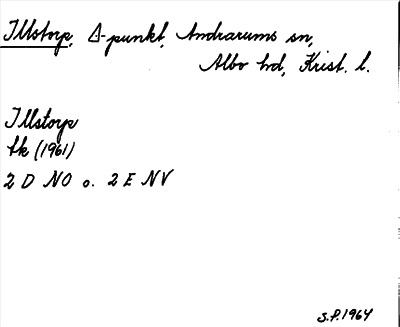 Illstorp, Δ-punkt, Andrarums sn,
Albo hd, Krist. l.
Illstorp
tk (1961)
2 D NO o. 2 E NV
S.P. 1964